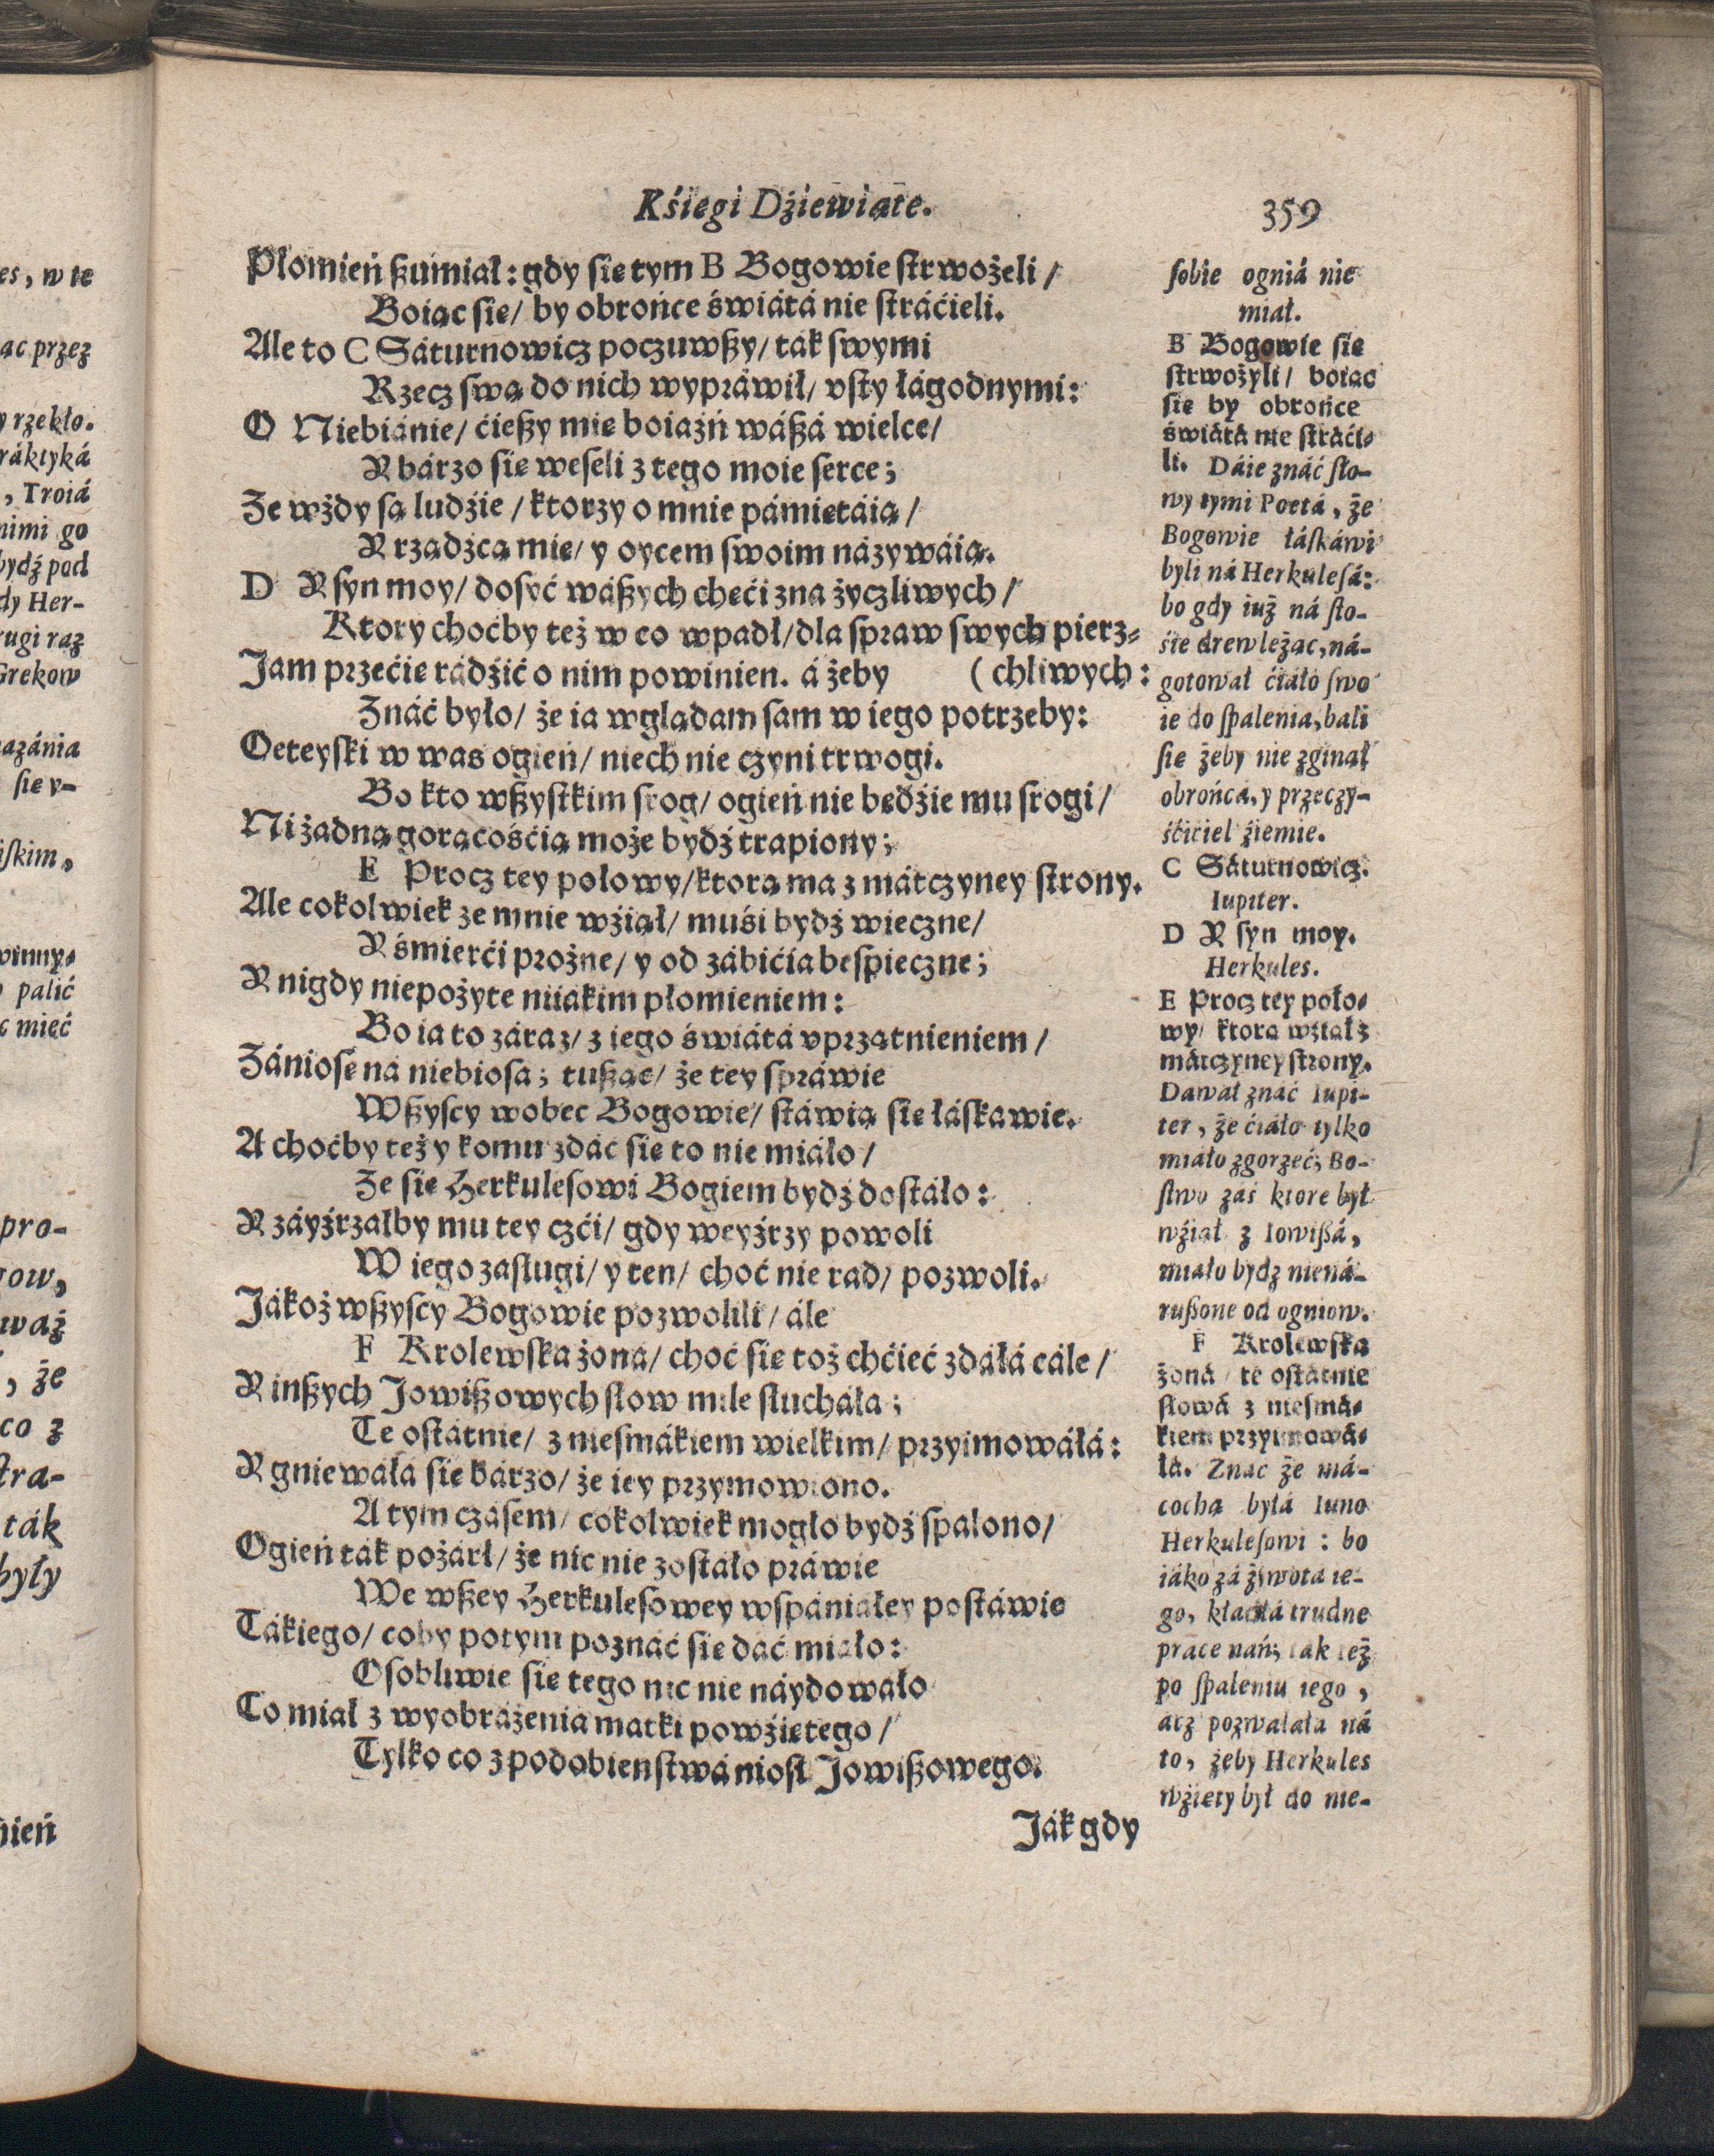 Kśięgi Dźiewiąte.
359
Płomień ßumiał: gdy się tym B Bogowie strwożeli /
Boiąc się / by obrońce świátá nie stráćieli.
Ale to C Sáturnowicz poczuwßy / ták swymi
Rzecz swą do nich wypráwił / vsty łágodnymi:
O Niebiánie / ćießy mię boiaźń wáßá wielce /
Y bárzo się weseli z tego moie serce;
Że wżdy są ludźie / ktorzy o mnie pámiętáią /
Y rządźcą mię / y oycem swoim názywáią.
D Y syn moy / dosyć wáßych chęći zna życzliwych /
Ktory choćby też w co wpadł / dla spraw swych pierz-
Jam przećie rádźić o nim powinien. á żeby ( chliwych:
Znáć było / że ia wglądam sam w iego potrzeby:
Oeteyski w was ogień / niech nie czyni trwogi.
Bo kto wßystkim srog / ogień nie będźie mu srogi /
Ni żadną gorącośćią może bydź trapiony;
E Procz tey połowy / ktorą ma z mátczyney strony.
Ale cokolwiek ze mnie wźiął / muśi bydź wieczne /
Y śmierći prożne / y od zábićia bespieczne;
Y nigdy niepożyte niiakim płomieniem:
Bo ia to záraz / z iego świátá vprzątnieniem /
Zániosę ná niebiosa; tußąc / że tey spráwie
Wßyscy wobec Bogowie / stáwią się łáskawie.
A choćby też y komu zdáć się to nie miáło /
Że się Herkulesowi Bogiem bydź dostáło:
Y záyźrzałby mu tey czći / gdy weyźrzy powoli
W iego zasługi / y ten / choć nie rad / pozwoli.
Jákoż wßyscy Bogowie pozwolili / ále
F Krolewska żoná / choć się toż chćieć zdáłá cále /
Y inßych Jowißowych słow mile słucháła;
Te ostátnie / z niesmákiem wielkim / przyimowáłá:
Y gniewáłá się bárzo / że iey przymowiono.
A tym czásem / cokolwiek mogło bydź spalono /
Ogień ták pożárł / że nic nie zostáło práwie
We wßey Herkulesowey wspániałey postáwie
Tákiego / coby potym poznáć się dáć miało:
Osobliwie się tego nic nie náydowało
Co miał z wyobráżenia matki powźiętego /
Tylko co z podobieństwá niosł Jowißowego.
Ják gdy
sobie ogniá nie
miał.
B Bogowie się
strwożyli / boiąc
się by obrońce
świátá nie stráći-
li. Dáie znáć sło-
wy tymi Poetá, że
Bogowie łáskáwi
byli ná Herkulesá:
bo gdy iuż ná sto-
śie drew leżąc, ná-
gotował ćiáło swo
ie do spalenia, bali
się żeby nie zginął
obrońca, y przeczy-
śćiciel źiemie.
C Sáturnowicz.
Iupiter.
D Y syn moy.
Herkules.
E Procz tey poło-
wy / ktorą wźiął z
mátczyney strony.
Dawał znáć Iupi-
ter, że ćiáło tylko
miáło zgorzeć; Bo-
stwo zaś ktore był
wźiął z Iowißá,
miáło bydź niená-
rußone od ogniow.
F Krolewska
żoná / te ostátnie
słowá z niesmá-
kiem przyimowá-
łá. Znáć że má-
cochą byłá Iuno
Herkulesowi: bo
iáko zá żywota ie-
go, kłádłá trudne
prace nań; ták też
po spaleniu iego,
acz pozwalała ná
to, żeby Herkules
wźięty był do nie-
es, w te
ąc przez
y rzekło.
ráktyká
, Troiá
nimi go
bydź pod
dy Her-
rugi raz
Grekow
azánia
się v-
iskim,
winny-
palić
c mieć
pro-
gow,
waż
, że
co z
stra-
ták
były
mień